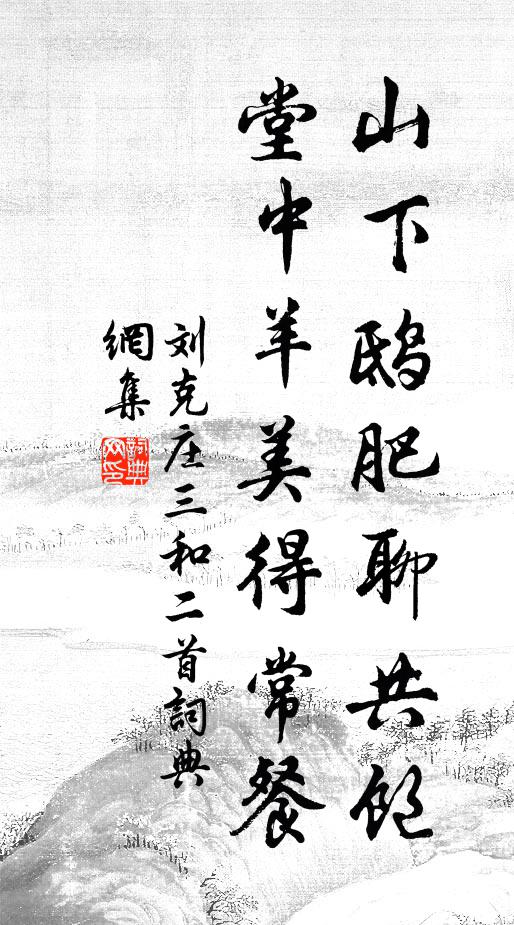 山下鸱肥聊共饱
堂中羊美得常餐
刘克庄三和二首词典
網集